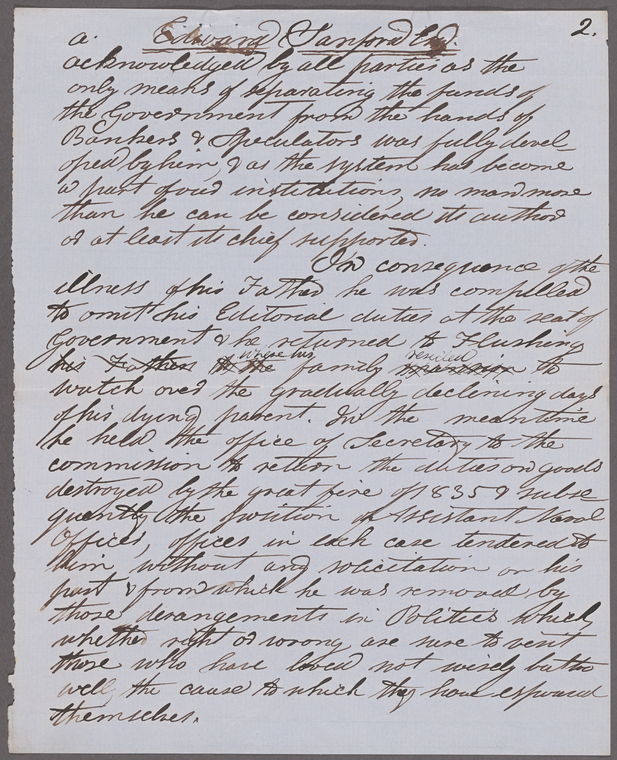 a. Edward Sanford Esq. 2.
acknowledged by all parties as the
only means of separating the funds of
the Government from the hands of
Bankers & Speculators was fully devel-
oped by him, & as the system has become
a part of our institutions, no man more
than he can be considered its author
or at least its chief supporter.
In consequence of the
illness of his Father he was compelled
to omit his Editorial duties at the seat of
Government & he returned to Flushing
where his resided
his Fathers to the family mansion to
watch over the gradually declining days
of his dying parent. In the meantime
he held the office of Secretary to the
commission to return the duties on goods
destroyed by the great fire of 1835 & subse
quently the position of Assistant Naval
Officer, offices in each case tendered to
him without any solicitation on his
part & from which he was removed by
those derangements in Politics which
whether right or wrong are sure to visit
those who have loved not wisely but too
well the cause to which they have espoused
themselves.